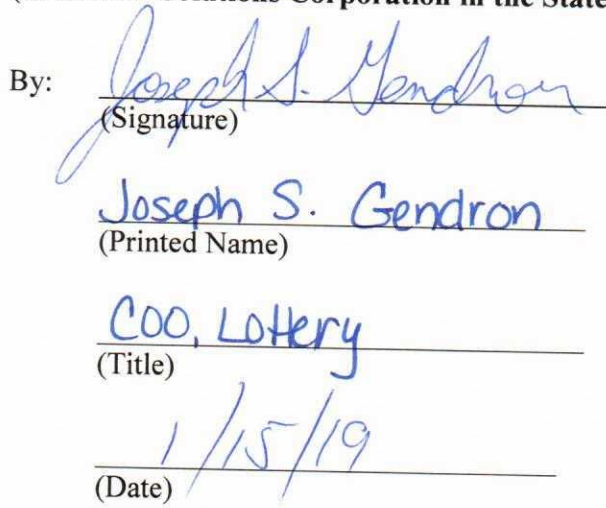 Corporation in the State
By:
Joseph S. Gendron
(Signature)
Joseph S. Gendron
(Printed Name)
COO, Lottery
(Title)
1/15/19
(Date)